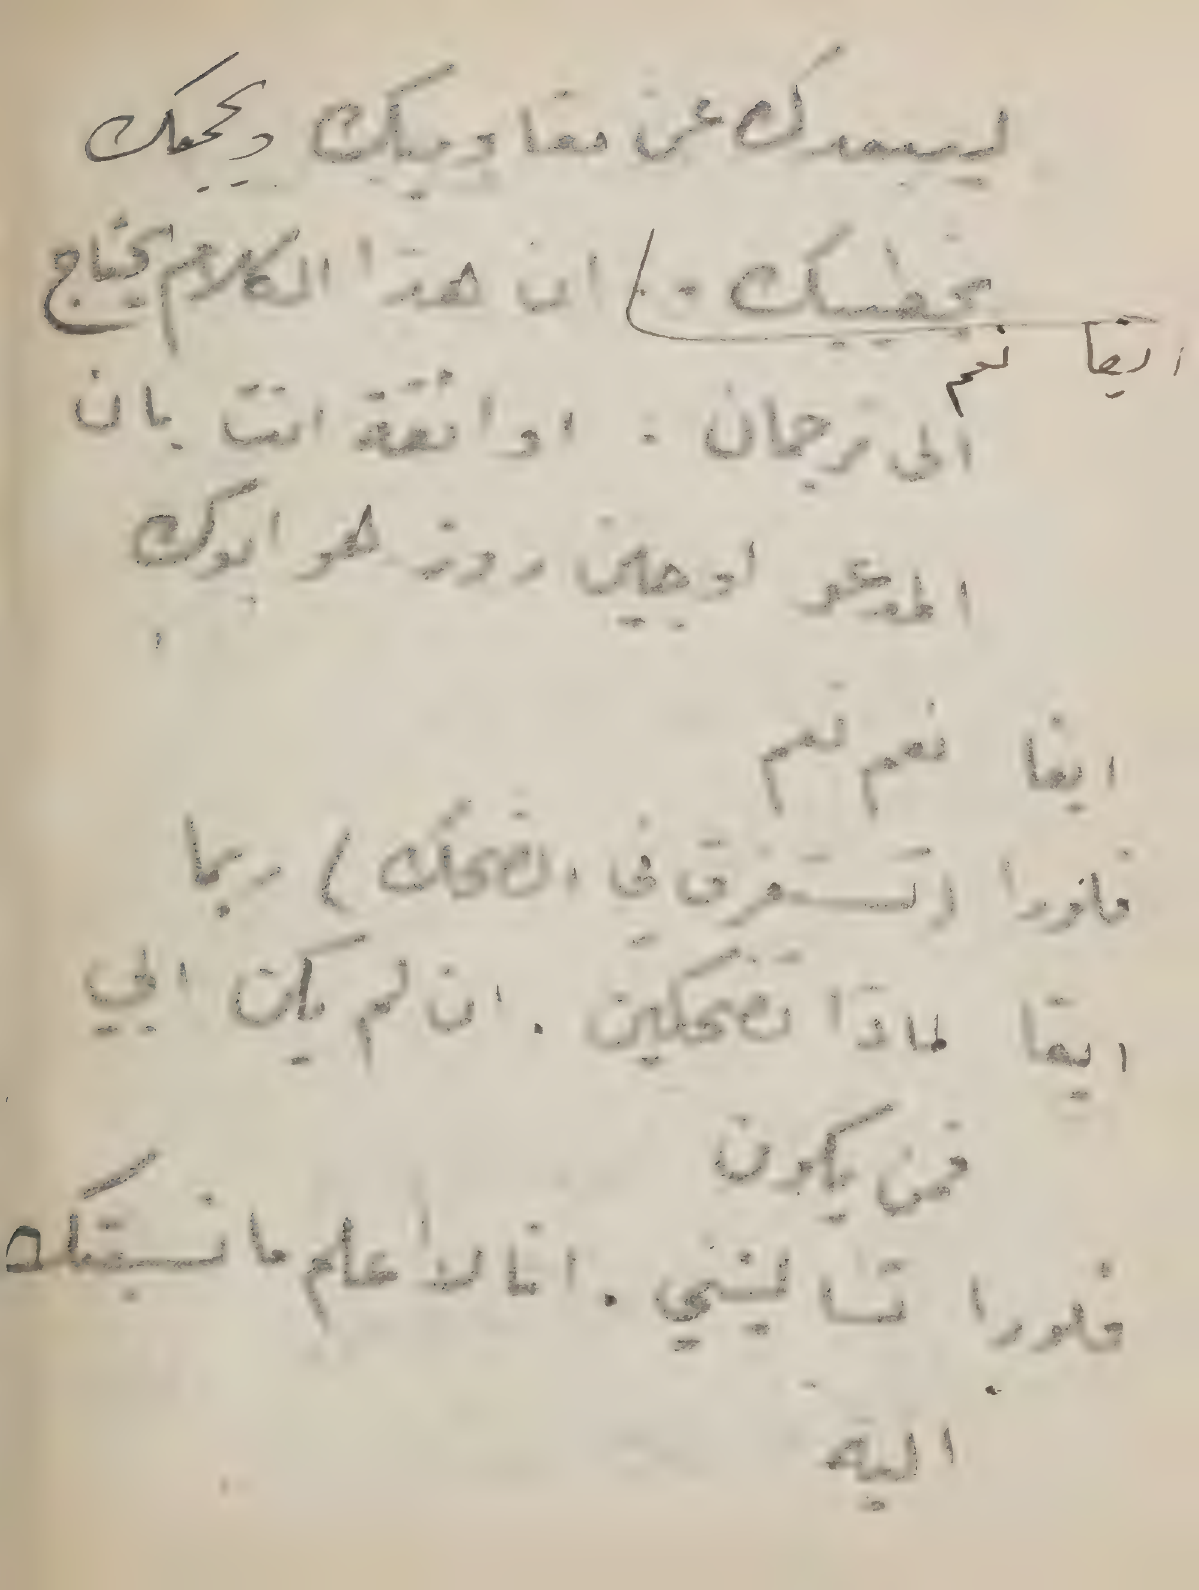 ليبعدك عن معاونيك ويجمعك
بخطيبك .. ) ان هذا الكلام يحتاج
ايفا نعم
الى ترجمان . اواثقة انت بان
المدعو اوجين روز هو ابوك
ايفا نعم نعم
فلورا (تستغرق في الضحك) ربما
ايفا لماذا تضحكين . ان لم يكن ابي
فمن يكون
فلورا تسألينني . انا لا أعلم ما نسبتك
اليه